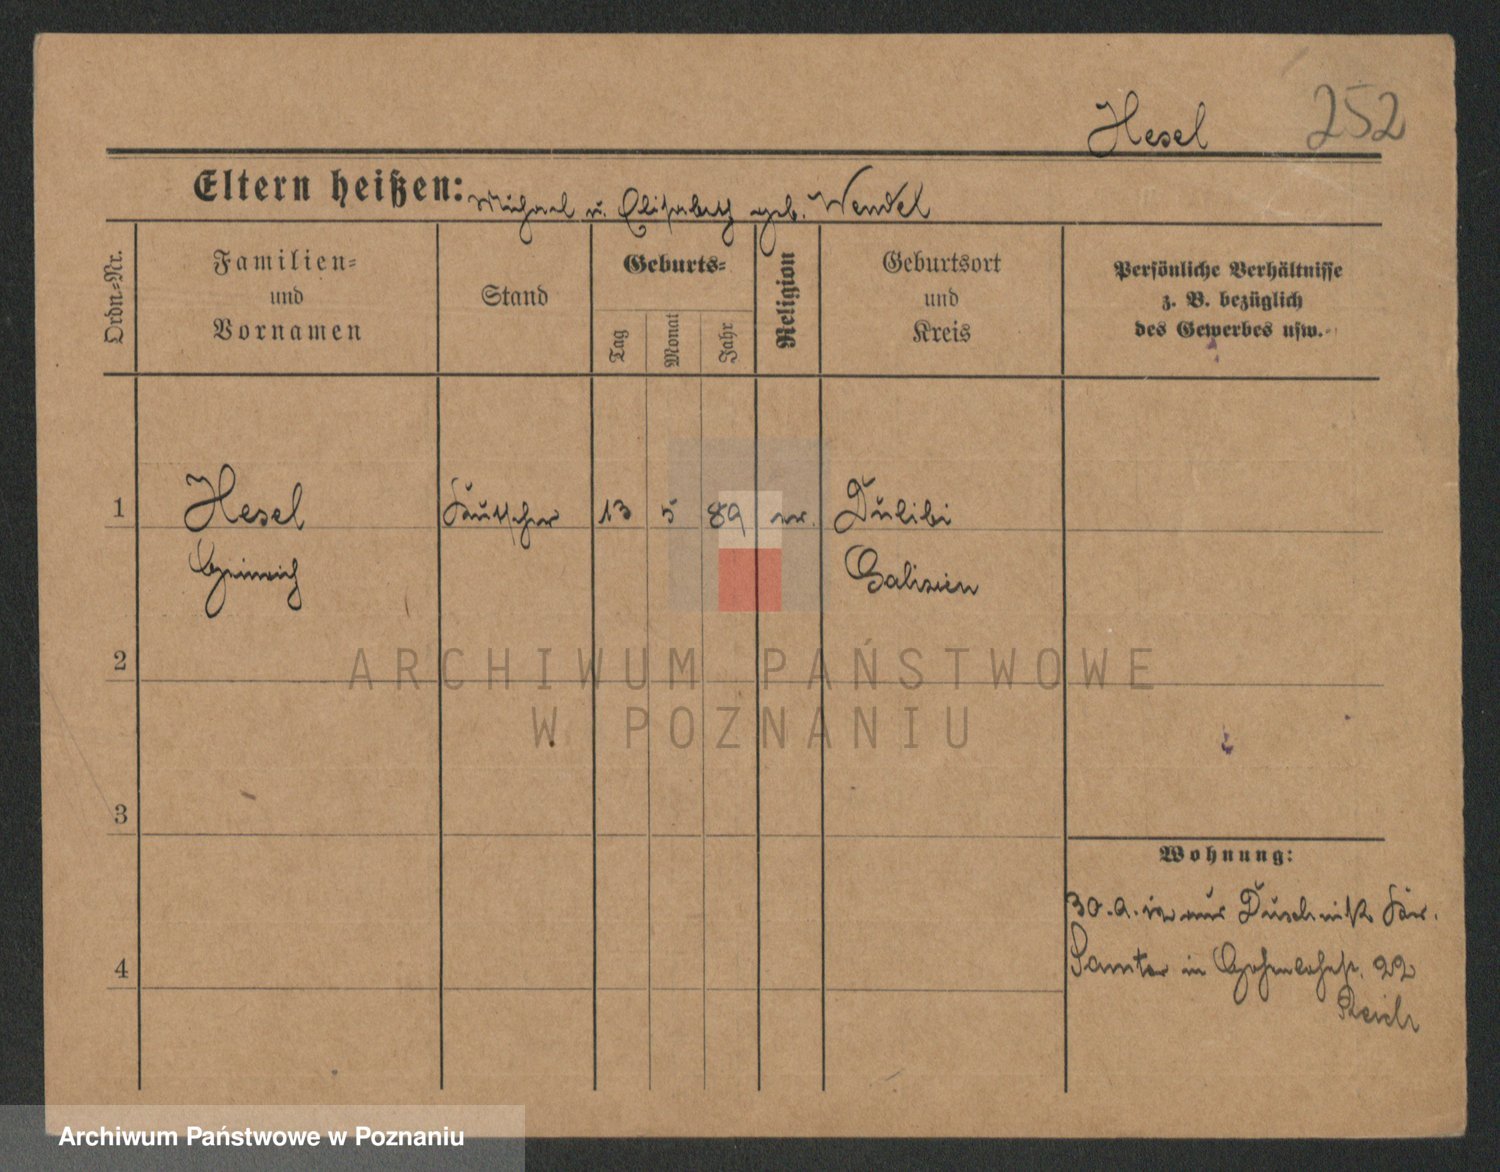 Hesel 252
Eltern heißen: Michael u. Elisabeth geb. Wendel
Ordn.-Nr.
Familien-
und
Vornamen
Stand
Geburts-
Tag
Monat
Jahr
Religion
Geburtsort
und
Kreis
Persönliche Verhältnisse
z. B. bezüglich
des Gewerbes usw.
1 Hesel 13 5 89 Dulibi
Heinrich Galizien
2
3
4
Wohnung:
30. 9. Duschnik Kr.
Samter in Hohenlohestr. 22
Reich
ARCHIWUM PAŃSTWOWE
W POZNANIU
Archiwum Państwowe w Poznaniu